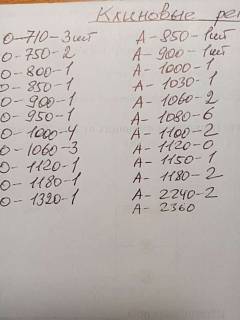 Клиновые рем
О-710-3шт
О-750-2
О-800-1
О-850-1
О-900-1
О-950-1
О-1000-4
О-1060-3
О-1120-1
О-1180-1
О-1320-1
А-850-1шт
А-900-1шт
А-1000-1
А-1030-1
А-1060-2
А-1080-6
А-1100-2
А-1120-0
А-1150-1
А-1180-2
А-2240-2
А-2360